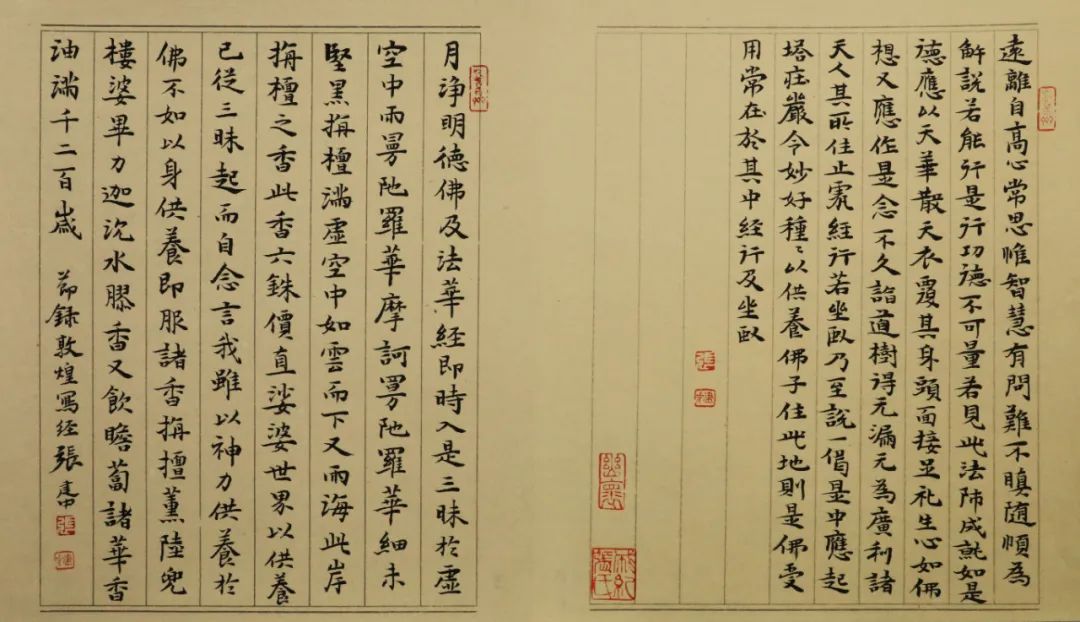 遠離自高心常思惟智慧有問難不瞋随順為
解說若能行是行功德不可量若見此法師成就如是
德應以天華散天衣覆其身頭面接足礼生心如佛
想又應作是念不久詣道樹得无漏无為廣利諸
天人其所住止處経行若坐臥乃至說一偈是中應起
塔莊嚴令妙好種〻以供養佛子住此地則是佛受
用常在於其中経行及坐臥
張
月淨明德佛及法華経即時入是三昧於虛
空中雨曼陁羅華摩訶曼陁羅華細末
堅黑栴檀滿虛空中如雲而下又雨海此岸
栴檀之香此香六銖價直娑婆世界以供養
已從三昧起而自念言我雖以神力供養於
佛不如以身供養即服諸香栴檀薰陸兜
樓婆畢力迦沉水膠香又飲瞻蔔諸華香
油滿千二百歲 節録敦煌寫経張
張